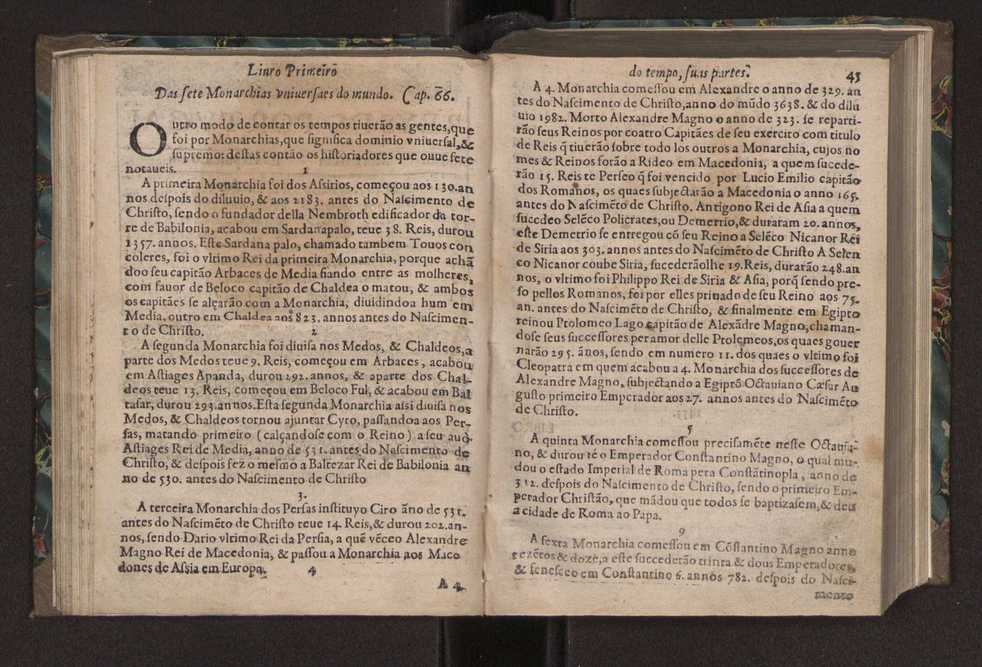 Liuro Primeiro
Das sete Monarchias vniuersaes do mundo. Cap. 66.
Outro modo de contar os tempos tiuerão as gentes, que
foi por Monarchias, que significa dominio vniuersal, &
supremo: destas contão os historiadores que ouue sete
notaueis.
1
A primeira Monarchia foi dos Assirios, começou aos 130. an
nos despois do diluuio, & aos 2183. antes do Nascimento de
Christo, sendo o fundador della Nembroth edificador da tor-
re de Babilonia, acabou em Sardanapalo, teue 38. Reis, durou
1357. annos. Este Sardana palo, chamado tambem Touos con
coleres, foi o vltimo Rei da primeira Monarchia, porque achã
doo seu capitão Arbaces de Media fiando entre as molheres,
com fauor de Beloco capitão de Chaldea o matou, & ambos
os capitães se alçarão com a Monarchia, diuidindoa hum em
Media, outro em Chaldea aos 823. annos antes do Nascimen-
to de Christo.
2
A segunda Monarchia foi diuisa nos Medos, & Chaldeos, a
parte dos Medos teue 9. Reis, começou em Arbaces, acabou
em Astiages Apanda, durou 292. annos, & aparte dos Chal-
deos teue 13. Reis, começou em Beloco Ful, & acabou em Bal
tasar, durou 293. annos. Esta segunda Monarchia assi diuisa nos
Medos, & Chaldeos tornou ajuntar Cyro, passandoa aos Per-
sas, matando primeiro (calçandose com o Reino) a seu auò
Astiages Rei de Media, anno de 531. antes do Nascimento de
Christo, & despois fez o mesmo a Baltezar Rei de Babilonia an
no de 530. antes do Nascimento de Christo
3.
A terceira Monarchia dos Persas instituyo Ciro ãno de 531.
antes do Nascimẽto de Christo teue 14. Reis, & durou 202. an-
nos, sendo Dario vltimo Rei da Persia, a quẽ vẽceo Alexandre
Magno Rei de Macedonia, & passou a Monarchia aos Mace
dones de Assia em Europa.
4
A 4.
do tempo, suas partes.
43
A 4. Monarchia comessou em Alexandre o anno de 329. an
tes do Nascimento de Christo, anno do mũdo 3638. & do dilu
uio 1982. Morto Alexandre Magno o anno de 323. se reparti-
rão seus Reinos por coatro Capitães de seu exercito com titulo
de Reis q̃ tiuerão sobre todo los outros a Monarchia, cujos no
mes & Reinos forão a Rideo em Macedonia, a quem sucede-
rão 15. Reis te Perseo q̃ foi vencido por Lucio Emilio capitão
dos Romanos, os quaes subjectarão a Macedonia o anno 165.
antes do Nascimẽto de Christo. Antigono Rei de Asia a quem
succdeo Selẽco Policrates, ou Demetrio, & duraram 20. annos,
este Demetrio se entregou cõ seu Reino a Selẽco Nicanor Rei
de Siria aos 303. annos antes do Nascimẽto de Christo A Selen
co Nicanor coube Siria, sucederãolhe 19. Reis, durarão 248. an
nos, o vltimo foi Philippo Rei de Siria & Asia, porq̃ sendo pre-
so pellos Romanos, foi por elles priuado de seu Reino aos 75.
an. antes do Nascimẽto de Christo, & finalmente em Egipto
reinou Ptolomeo Lago capitão de Alexãdre Magno, chaman-
dose seus successores per amor delle Ptolemeos, os quaes gouer
narão 295. ãnos, sendo em numero 11. dos quaes o vltimo foi
Cleopatra em quem acabou a 4. Monarchia dos successores de
Alexandre Magno, subjectando a Egiptõ Octauiano Cæsar Au
gusto primeiro Emperador aos 27. annos antes do Nascimẽto
de Christo.
5
A quinta Monarchia comessou precisamẽte neste Octauia-
no, & durou té o Emperador Constantino Magno, o qual mu-
dou o estado Imperial de Roma pera Constãtinopla, anno de
312. despois do Nascimento de Christo, sendo o primeiro Em-
perador Christão, que mãdou que todos se baptizasem, & deu
a cidade de Roma ao Papa.
9
A sexta Monarchia comessou em Cõstantino Magno anno
trezẽtos & doze, a este succederão trinta & dous Emperadores,
& feneseco em Constantino 6. annos 782. despois do Nasci-
mento